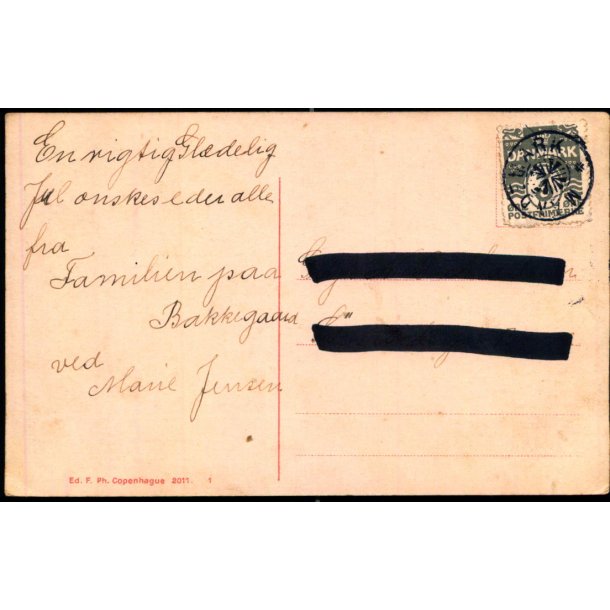 En rigtig Glædelig
Jul ønskes eder alle
fra
Familien paa
Bakkegaard
ved
Marie Jensen
DANMARK
POSTFRIMÆRKE
Ed. F. Ph. Copenhague 2011. 1